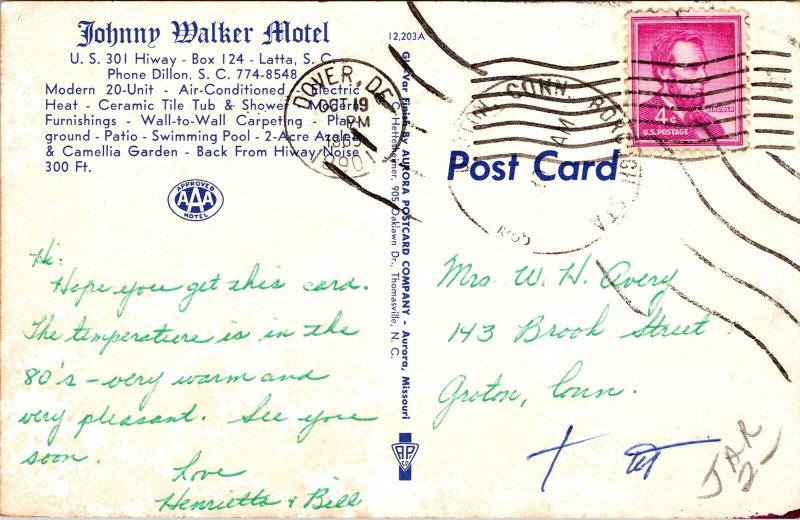 Johnny Walker Motel
U. S. 301 Hiway - Box 124 - Latta, S. C.
Phone Dillon, S. C. 774-8548
Modern 20-Unit - Air-Conditioned - Electric
Heat - Ceramic Tile Tub & Shower - Modern
Furnishings - Wall-to-Wall Carpeting - Play-
ground - Patio - Swimming Pool - 2-Acre Azalea
& Camellia Garden - Back From Hiway Noise
300 Ft.
APPROVED
AAA
MOTEL
Hi:
Hope you get this card.
The temperature is in the
80's - very warm and
very pleasant. See you
soon.
Love
Henrietta & Bill
12,203A
Finish By AURORA POSTCARD COMPANY - Aurora, Missouri
Hettesheimer, 905 Oaklawn Dr., Thomasville, N. C.
AP
DOVER, DE
OCT 19
PM
1965
19901
CONN.
AM
1965
STA
4¢
LINCOLN
U.S. POSTAGE
Post Card
Mrs W. H. Avery
143 Brook Street
Groton, Conn.
JAR
2-